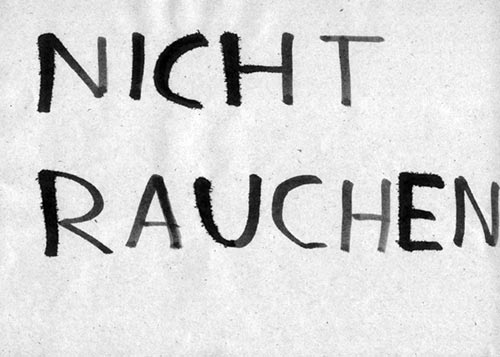 NICHT
RAUCHEN